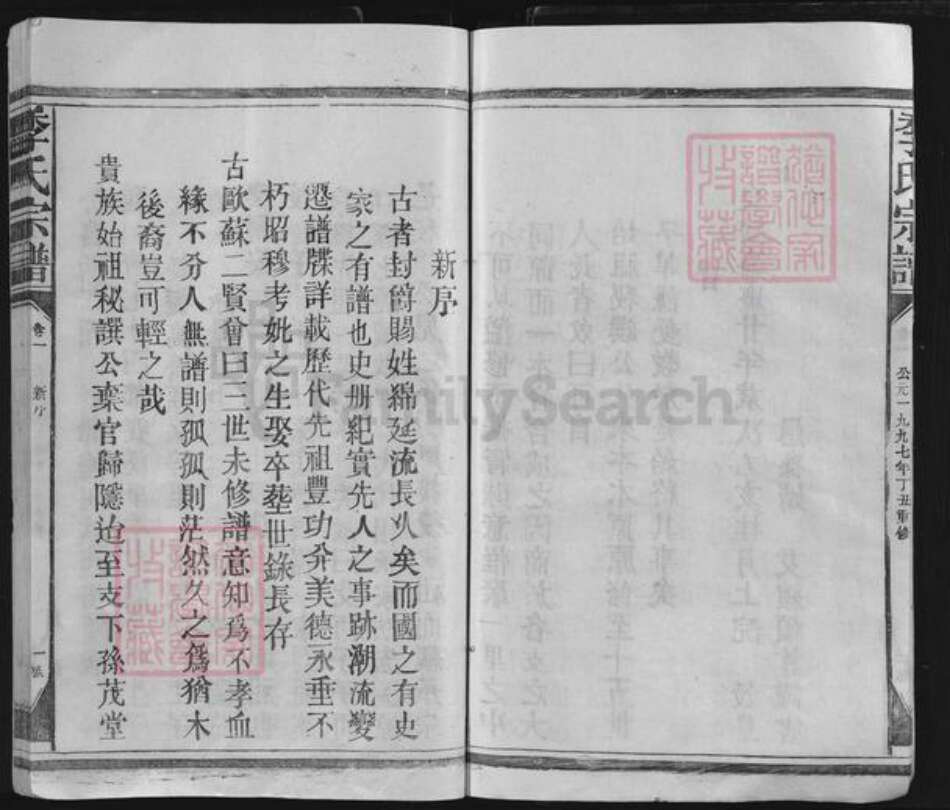 李氏宗譜
公元一九九七年丁丑重修
新序
古者封爵賜姓綿延流長久矣而國之有史
家之有譜也史册紀實先人之事跡潮流變
遷譜牒詳載歷代先祖豐功介美德永垂不
朽昭穆考妣之生娶卒塟世錄長存
古歐蘇二賢曾曰三世未修譜意知爲不孝血
緣不分人無譜則孤孤則茫然久之爲猶木
後裔豈可輕之哉
貴族始祖秘譔公棄官歸隱迨至支下孫茂堂
李氏宗譜
卷一
新序
一
FamilySearch